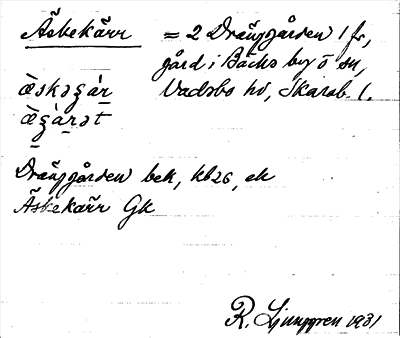 Äskekärr = 2 Dränggården 1 fr,
gård i Bäcks by ö sn,
Vadsbo hd, Skarab l.
æ̀skəʒár
æ̀ʒàrət
Dränggården bek, kb26, ek
Äskekärr Gk
R. Ljunggren 1931